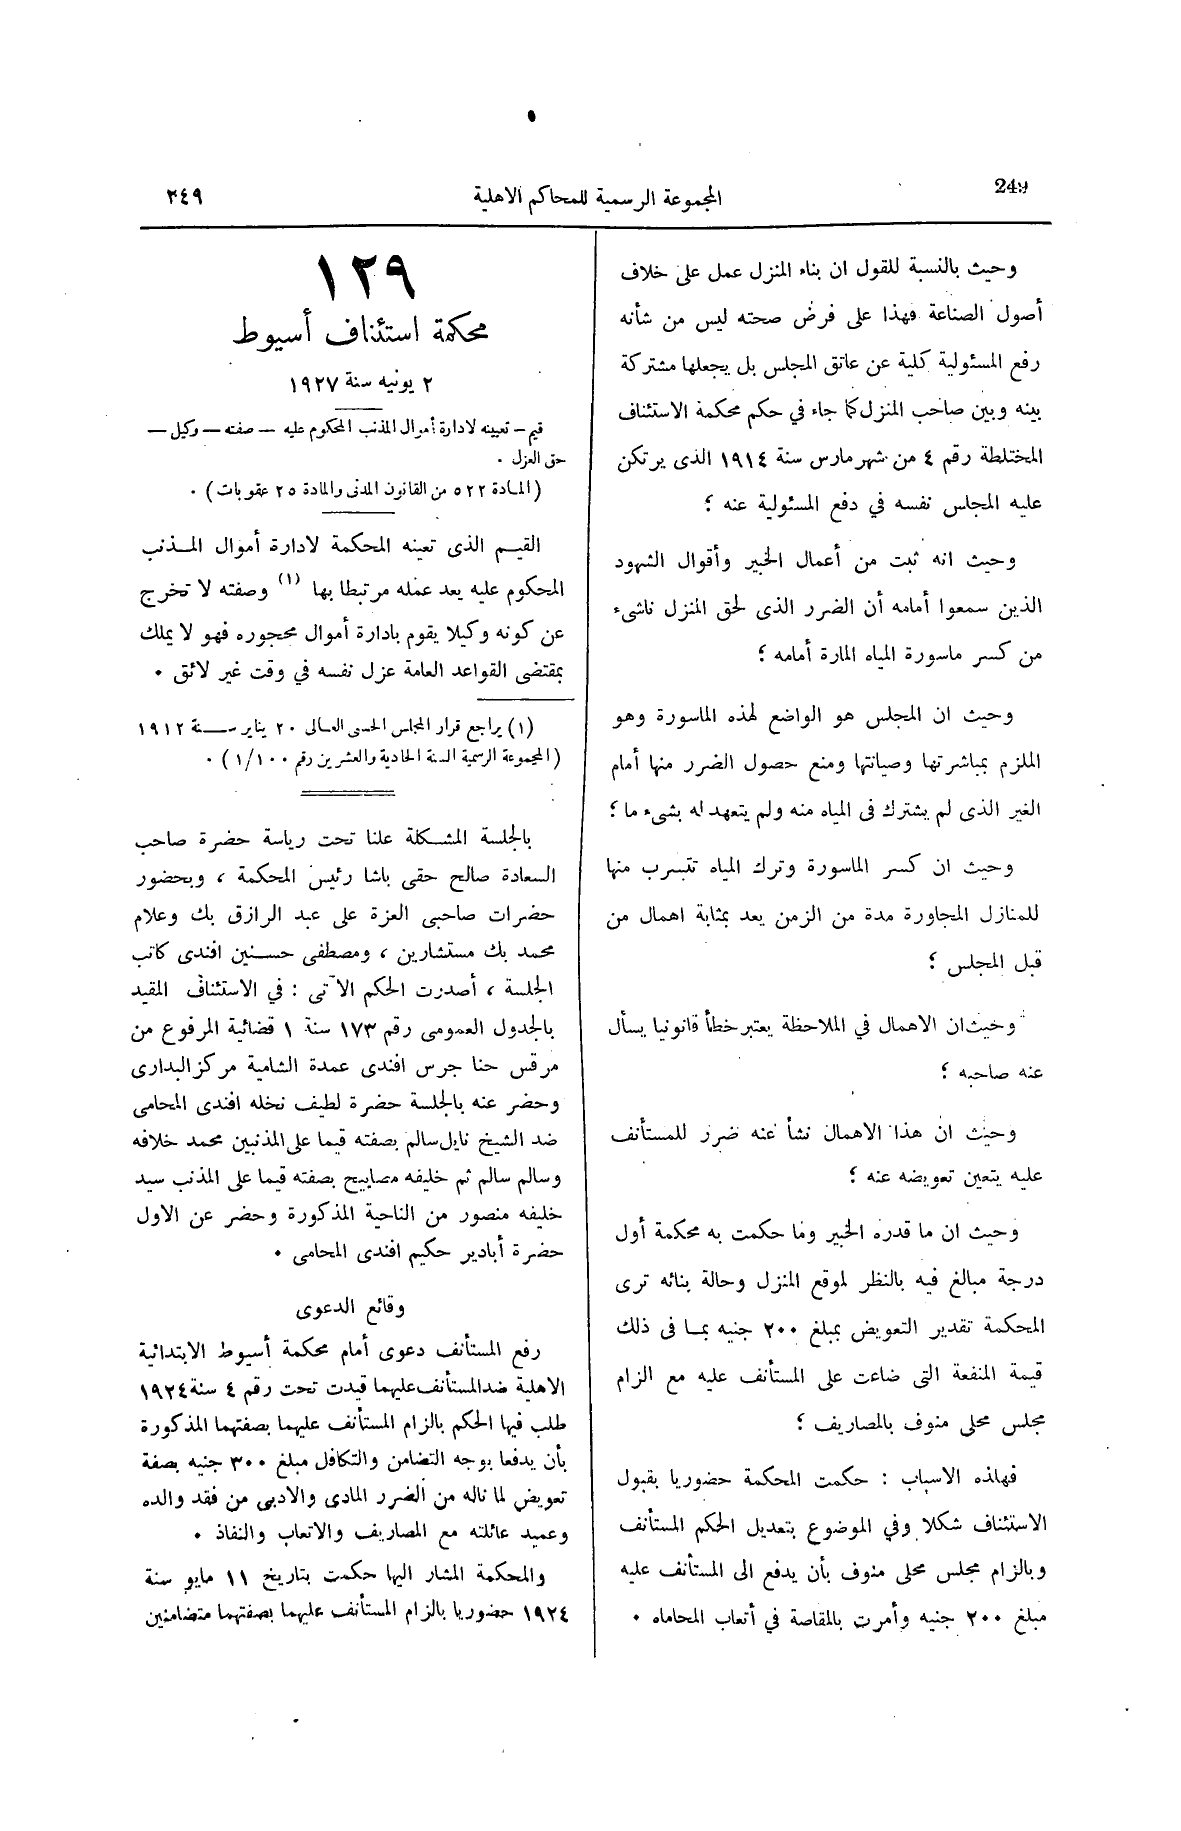 249
المجموعة الرسمية للمحاكم الاهلية
٢٤٩
وحيث بالنسبة للقول ان بناء المنزل عمل على خلاف
أصول الصناعة فهذا على فرض صحته ليس من شأنه
رفع المسئولية كلية عن عاتق المجلس بل يجعلها مشتركة
بينه وبين صاحب المنزل كما جاء في حكم محكمة الاستئناف
المختلطة رقم ٤ من شهر مارس سنة ١٩١٤ الذى يرتكن
عليه المجلس نفسه في دفع المسئولية عنه ؛
وحيث انه ثبت من أعمال الخبير وأقوال الشهود
الذين سمعوا أمامه أن الضرر الذى لحق المنزل ناشىء
من كسر ماسورة المياه المارة أمامه ؛
وحيث ان المجلس هو الواضع لهذه الماسورة وهو
الملزم بمباشرتها وصيانتها ومنع حصول الضرر منها أمام
الغير الذى لم يشترك فى المياه منه ولم يتعهد له بشىء ما ؛
وحيث ان كسر الماسورة وترك المياه تتسرب منها
للمنازل المجاورة مدة من الزمن يعد بمثابة اهمال من
قبل المجلس ؛
وحيث ان الاهمال في الملاحظة يعتبر خطأ قانونيا يسأل
عنه صاحبه ؛
وحيث ان هذا الاهمال نشأ عنه ضرر للمستأنف
عليه يتعين تعويضه عنه ؛
وحيث ان ما قدره الخبير وما حكمت به محكمة أول
درجة مبالغ فيه بالنظر لموقع المنزل وحالة بنائه ترى
المحكمة تقدير التعويض بمبلغ ٢٠٠ جنيه بما فى ذلك
قيمة المنفعة التى ضاعت على المستأنف عليه مع الزام
مجلس محلى منوف بالمصاريف ؛
فهاذه الاسباب : حكمت المحكمة حضوريا بقبول
الاستئناف شكلا وفي الموضوع بتعديل الحكم المستأنف
وبالزام مجلس محلى منوف بأن يدفع الى المستأنف عليه
مبلغ ٢٠٠ جنيه وأمرت بالمقاصة في أتعاب المحاماه ٠
١٢٩
محكمة استئناف أسيوط
٢ يونيه سنة ١٩٢٧
قيم – تعيينه لادارة أموال المذنب المحكوم عليه – صفته – وكيل –
حق العزل ٠
(المادة ٥٢٢ من القانون المدنى والمادة ٢٥ عقوبات) ٠
القيم الذى تعينه المحكمة لادارة أموال المذنب
المحكوم عليه يعد عمله مرتبطا بها (١) وصفته لا تخرج
عن كونه وكيلا يقوم بادارة أموال محجوره فهو لا يملك
بمقتضى القواعد العامة عزل نفسه في وقت غير لائق ٠
(١) يراجع قرار المجلس الحسبى العالى ٢٠ يناير سنة ١٩١٢
(المجموعة الرسمية السنة الحادية والعشرين رقم ١/١٠٠) ٠
بالجلسة المشكلة علنا تحت رياسة حضرة صاحب
السعادة صالح حقى باشا رئيس المحكمة ، وبحضور
حضرات صاحبى العزة على عبد الرازق بك وعلام
محمد بك مستشارين ، ومصطفى حسنين افندى كاتب
الجلسة ، أصدرت الحكم الآتى : في الاستئناف المقيد
بالجدول العمومى رقم ١٧٣ سنة ١ قضائية المرفوع من
مرقس حنا جرس افندى عمدة الشامية مركز البدارى
وحضر عنه بالجلسة حضرة لطيف نخله افندى المحامى
ضد الشيخ نايل سالم بصفته قيما على المذنبين محمد خلافه
وسالم سالم ثم خليفه مصابيح بصفته قيما على المذنب سيد
خليفه منصور من الناحية المذكورة وحضر عن الاول
حضرة أبادير حكيم افندى المحامى ٠
وقائع الدعوى
رفع المستأنف دعوى أمام محكمة أسيوط الابتدائية
الاهلية ضد المستأنف عليهما قيدت تحت رقم ٤ سنة ١٩٢٤
طلب فيها الحكم بالزام المستأنف عليهما بصفتهما المذكورة
بأن يدفعا بوجه التضامن والتكافل مبلغ ٣٠٠ جنيه بصفة
تعويض لما ناله من الضرر المادى والادبى من فقد والده
وعميد عائلته مع المصاريف والاتعاب والنفاذ ٠
والمحكمة المشار اليها حكمت بتاريخ ١١ مايو سنة
١٩٢٤ حضوريا بالزام المستأنف عليهما بصفتهما متضامنين